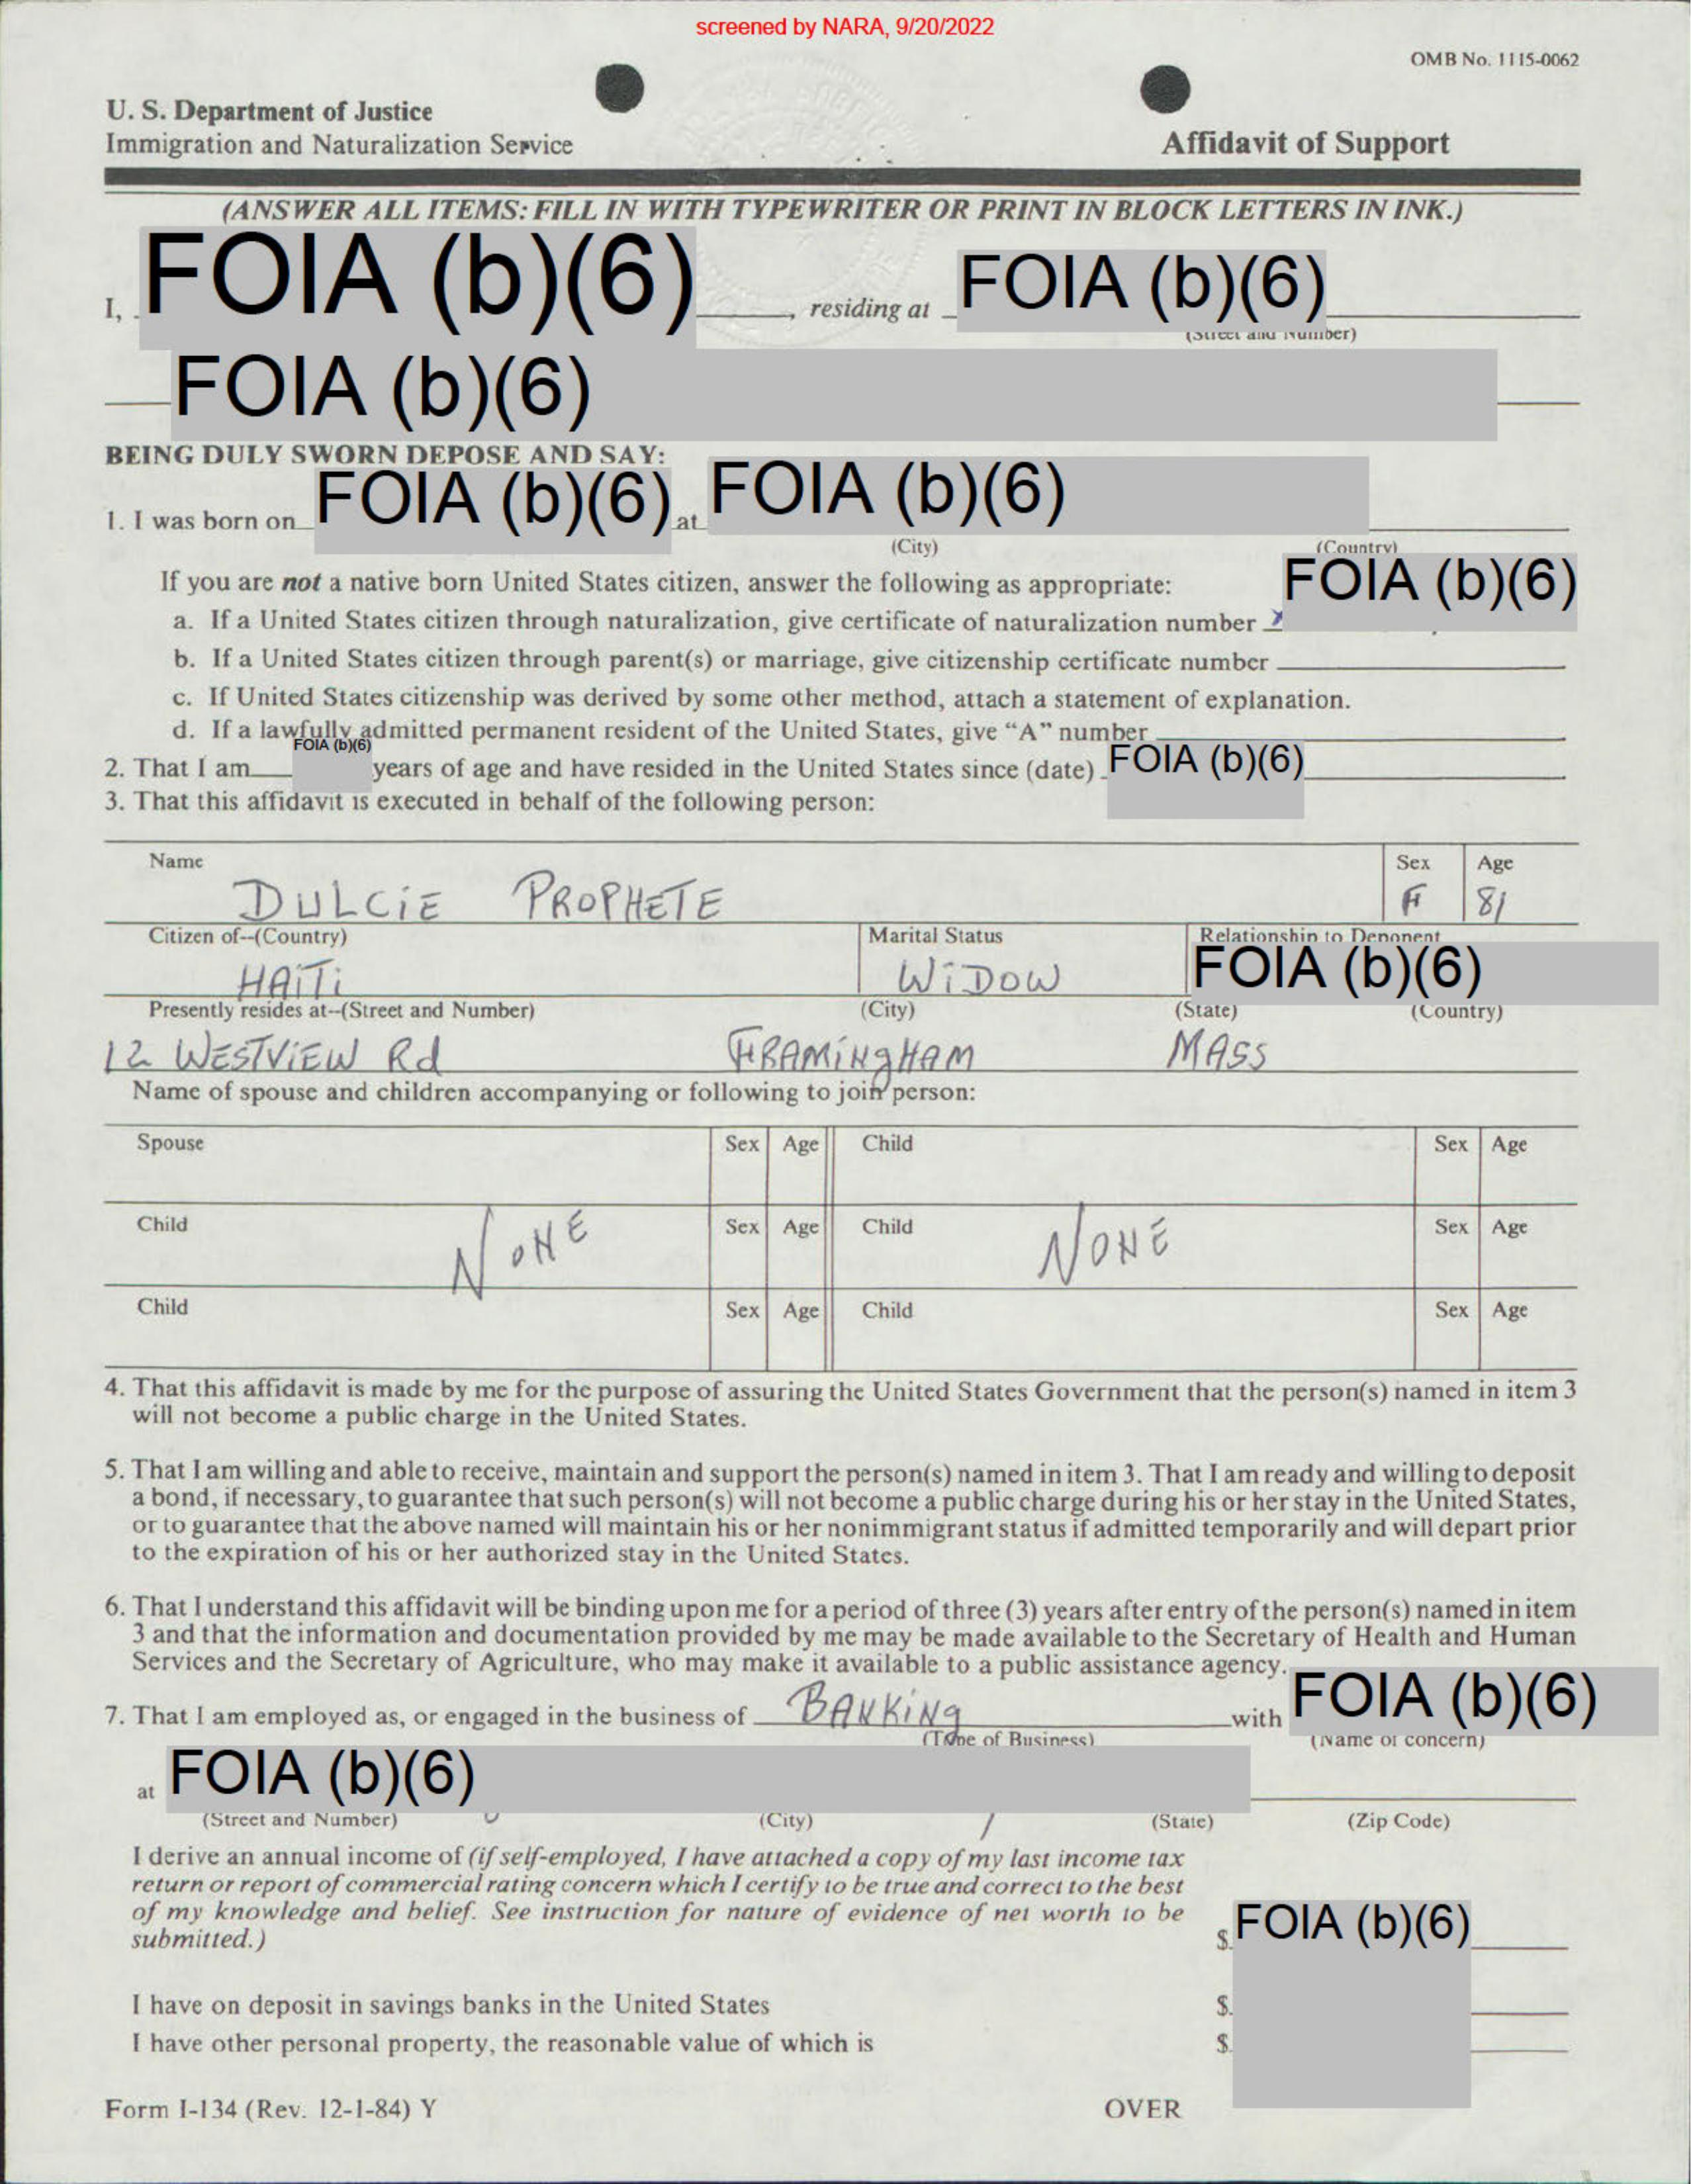 screened by NARA, 9/20/2022
OMB No. 1115-0062
U. S. Department of Justice
Immigration and Naturalization Service
Affidavit of Support
(ANSWER ALL ITEMS: FILL IN WITH TYPEWRITER OR PRINT IN BLOCK LETTERS IN INK.)
I, FOIA (b)(6), residing at FOIA (b)(6)
(Street and Number)
FOIA (b)(6)
BEING DULY SWORN DEPOSE AND SAY:
1. I was born on FOIA (b)(6) at FOIA (b)(6)
(City) (Country)
If you are not a native born United States citizen, answer the following as appropriate: FOIA (b)(6)
a. If a United States citizen through naturalization, give certificate of naturalization number
b. If a United States citizen through parent(s) or marriage, give citizenship certificate number
c. If United States citizenship was derived by some other method, attach a statement of explanation.
d. If a lawfully admitted permanent resident of the United States, give "A" number
2. That I am FOIA (b)(6) years of age and have resided in the United States since (date) FOIA (b)(6)
3. That this affidavit is executed in behalf of the following person:
Name Sex Age
DULCiE PROPHETE F 81
Citizen of--(Country) Marital Status Relationship to Deponent
HAiTi WiDOW FOIA (b)(6)
Presently resides at--(Street and Number) (City) (State) (Country)
12 WESTViEW Rd FRAMiNgHAM MASS
Name of spouse and children accompanying or following to join person:
Spouse Sex Age Child Sex Age
Child Sex Age Child Sex Age
NONE NONE
Child Sex Age Child Sex Age
4. That this affidavit is made by me for the purpose of assuring the United States Government that the person(s) named in item 3
will not become a public charge in the United States.
5. That I am willing and able to receive, maintain and support the person(s) named in item 3. That I am ready and willing to deposit
a bond, if necessary, to guarantee that such person(s) will not become a public charge during his or her stay in the United States,
or to guarantee that the above named will maintain his or her nonimmigrant status if admitted temporarily and will depart prior
to the expiration of his or her authorized stay in the United States.
6. That I understand this affidavit will be binding upon me for a period of three (3) years after entry of the person(s) named in item
3 and that the information and documentation provided by me may be made available to the Secretary of Health and Human
Services and the Secretary of Agriculture, who may make it available to a public assistance agency.
7. That I am employed as, or engaged in the business of BANKiNg with FOIA (b)(6)
(Type of Business) (Name of concern)
at FOIA (b)(6)
(Street and Number) (City) (State) (Zip Code)
I derive an annual income of (if self-employed, I have attached a copy of my last income tax
return or report of commercial rating concern which I certify to be true and correct to the best
of my knowledge and belief. See instruction for nature of evidence of net worth to be
submitted.) $ FOIA (b)(6)
I have on deposit in savings banks in the United States $
I have other personal property, the reasonable value of which is $
Form I-134 (Rev. 12-1-84) Y OVER